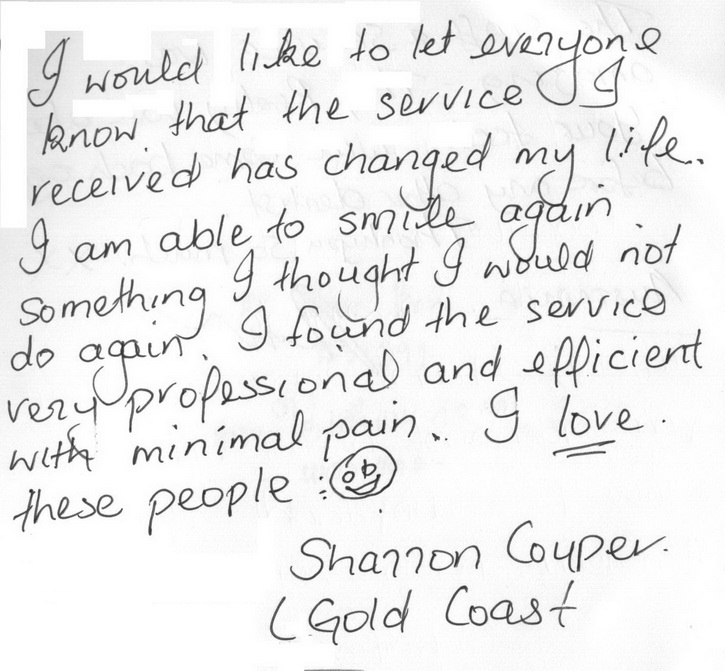 I would like to let everyone
know that the service I
received has changed my life.
I am able to smile again.
something I thought I would not
do again. I found the service
very professional and efficient
with minimal pain.. I love.
these people :
Sharron Couper.
(Gold Coast